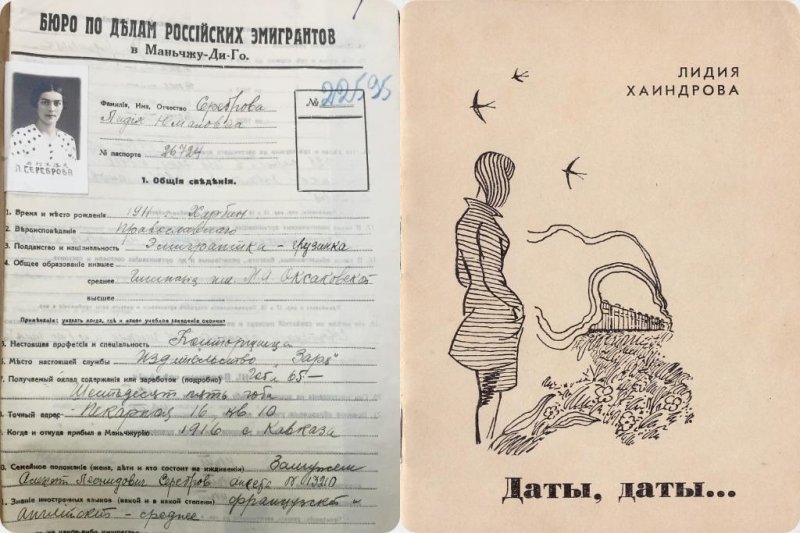 БЮРО ПО ДѢЛАМ РОССІЙСКИХ ЭМИГРАНТОВ
в Маньчжу-Ди-Го.
№ 22595
Фамилія, Имя, Отчество Сереброва
Лидія Юліановна
№ паспорта 26724
Л. СЕРЕБРОВА
1. Общія свѣдѣнія.
1. Время и мѣсто рожденія 1911 г. Харбин
2. Вѣроисповѣданіе Православнаго
3. Подданство и національность Эмигрантка - грузинка
4. Общее образованіе низшее
среднее Гимназія им. М. А. Оксаковской
высшее
Примѣчаніе: указать когда, гдѣ и какое учебное заведеніе окончил
5. Настоящая профессія и спеціальность Конторщица
6. Мѣсто настоящей службы Издательство "Заря"
7. Полученный оклад содержанія или заработок (подробно) 65-
Шестьдесят пять гоби
8. Точный адрес Пекарная 16 кв. 10
9. Когда и откуда прибыл в Маньчжурію 1916 с Кавказа
10. Семейное положеніе (жена, дѣти и кто состоит на иждивеніи) Замужем
Леонидович Серебров анкета № 13210
11. Знаніе иностранных языков (какой и в какой степени) французскій и
англійскій - среднее
ЛИДИЯ
ХАИНДРОВА
Даты, даты...